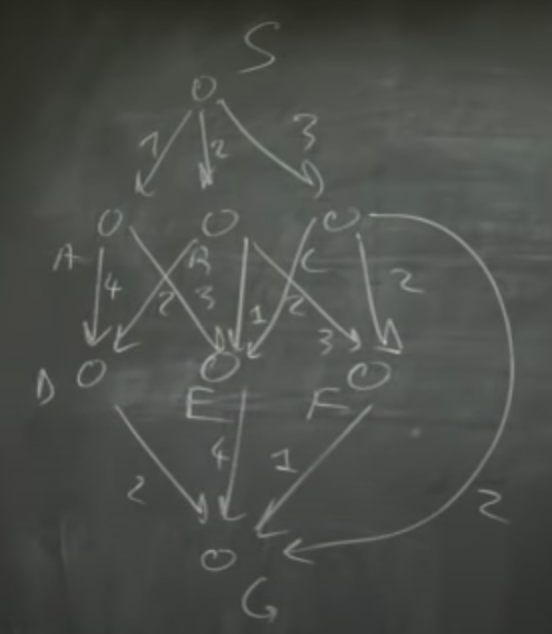 S
1 2 3
A B C
4 2 3 1 2 3 2
D E F
2 4 1 2
G